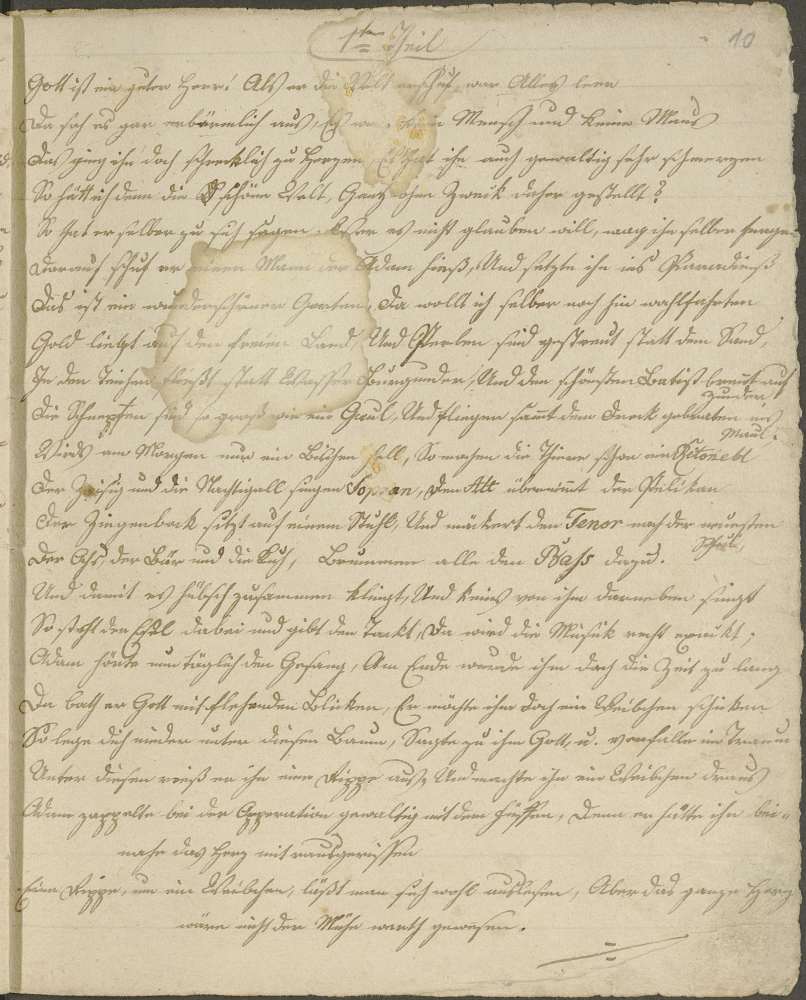 1ter Theil
10
Gott ist ein guter Herr! Als er die Welt erschuf, war Alles leer
Da sah es gar erbärmlich aus, Es war kein Mensch und keine Maus
Das ging ihm doch schrecklich zu Herzen, Es that ihn auch gewaltig sehr schmerzen
So hätt ich denn die schöne Welt, Ganz ohne Zweck daher gestellt?
So that er selber zu sich sagen, Wer es nicht glauben will, mag ihn selber fragen
Darauf schuf er einen Mann der Adam hieß, Und setzte ihn ins Paaradieß
Dies ist ein wunderschöner Garten, Da wollt ich selber noch hin wahlfahrten
Gold liegt auf den freien Land, Und Perlen sind gestreut statt dem Sand,
In den Teichen fließt statt Wasser Burgunder, Und den schönsten Batist brennt auf Zunder,
Die Schnepfen sind so groß wie ein Gaul, Und fliegen samt dem Dreck gebraten ins Maul.
Wirds am Morgen nur ein Bischen hell, So machen die Thiere schon ein
Der Zeisig und die Nachtigall singen Sopran, den Alt übernimmt der Pelikan
Der Ziegenbock sitzt auf einem Stuhl, Und mäckert den Tenor nach der neuesten Schul,
Der Ochs, der Bär und die Kuh, Brummen alle den Bass dazu.
Und damit es hübsch zusammen klingt, Und keins von ihm darneben singt
So steht der Esel dabei und gibt den Tackt, Da wird die Musik recht exackt;
Adam hörte nun täglich den Gesang, Am Ende wurde ihm doch die Zeit zu lang
Da bath er Gott mit flehenden Blicken, Er möchte ihm doch ein Weibchen schicken
So lege dich nieder unter diesen Baum, Sagte zu ihm Gott, u. verfalle in Traum
Unter diesen riß er ihm eine Rippe aus, Und machte ihm ein Weibchen draus
Adam zappelte bei der Opperation gewaltig mit dem Füssen, Denn er hätte ihm bei=
nahe das Herz mit rausgerissen
Eine Rippe, um ein Weibchen, läßt man sich wohl auslesen, Aber das ganze Herz
wäre nicht der Mühe werth gewesen.